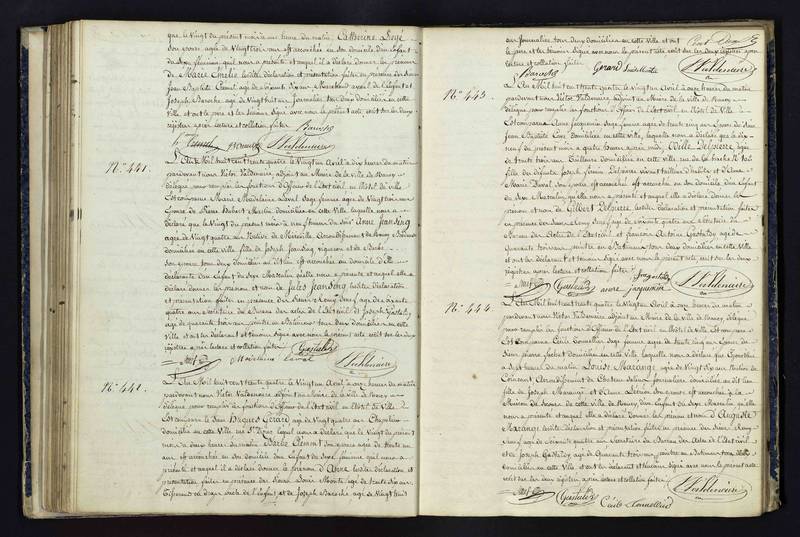 que le Vingt du présent mois à une heure du matin, Catherine
son épouse agée de Vingt trois ans est accouchée en son domicile d'un Enfant
du Sexe féminin qu'il nous a présenté et auquel il a déclaré donner les prénoms
de Marie Emélie lesdites déclaration et présentation faites en présence des Sieurs
Jean Baptiste agé de Soixante ans Marchand ayeul de l'Enfant et
Joseph Baroche agé de Vingt huit ans Journalier tous deux domiciliés en cette
Ville, et ont le père et les témoins signé avec nous le présent acte inscrit sur les deux
registres après lecture et collation faites
Valdenaire
N° 441.
L'An Mil huit cent trente quatre le Vingt un Avril à dix heures du matin
pardevant nous Victor Valdenaire adjoint au Maire de la Ville de Nancy
délégué pour remplir les fonctions d'Officier de l'Etat civil en l'hôtel de Ville
Est comparue Marie Madelaine Laval Sage femme agée de Vingt trois ans
Epouse de Pierre Hubert domiciliée en cette Ville laquelle nous a
déclaré que le Vingt du présent mois à neuf heures du soir Anne Jeanding
agée de Vingt quatre ans Native de Méréville, Arrondissement de Nancy
domiciliée en cette Ville fille de Joseph Jeanding vigneron et de Barbe
son épouse tous deux domiciliés au dit lieu est accouchée au domicile d'Elle
déclarante d'un Enfant du Sexe Masculin qu'elle nous a présenté et auquel elle a
déclaré donner les prénom et nom de Jules Jeanding lesdites déclaration
et présentation faites en présence des Sieurs Remy Neuf agé de Soixante
quatre ans Secrétaire du Bureau des actes de l'Etat civil et Joseph Gastaldy
agé de quarante trois ans peintre en Bâtiment tous deux domiciliés en cette Ville
et ont les déclarant et témoins signé avec nous le présent acte inscrit sur les deux
registres après lecture et collation faites Gastaldy
Neuf Madelaine Laval Valdenaire
N° 442.
L'An Mil huit cent trente quatre le Vingt un Avril à onze heures du matin
pardevant nous Victor Valdenaire adjoint au Maire de la Ville de Nancy
délégué pour remplir les fonctions d'Officier de l'Etat civil en l'hôtel de Ville
Est comparu le Sieur Hugues Gérard agé de Vingt quatre ans Chapelier
domicilié en cette Ville rue St Dizier lequel nous a déclaré que le Vingt du présent
mois à deux heures du matin Barbe Clément Son épouse agée de trente un
ans est accouchée en son domicile d'un Enfant du Sexe féminin qu'il nous a
présenté et auquel il a déclaré donner le prénom d'Anna lesdites déclaration et
présentation faites en présence des Sieurs Louis Monte agé de trente six ans
de l'Enfant et de Joseph Baroche agé de Vingt huit
ans Journalier tous deux domiciliés en cette Ville et ont
le père et les témoins signé avec nous le présent acte inscrit sur les deux registres après
lecture et collation faites
Baroche Gérard Louis Monte Valdenaire
N° 443.
L'An Mil huit cent trente quatre le Vingt un Avril à onze heures du matin
pardevant nous Victor Valdenaire adjoint au Maire de la Ville de Nancy
délégué pour remplir les fonctions d'Officier de l'Etat civil en l'hôtel de Ville
Est comparue Anne Jacquemin Sage femme agée de trente cinq ans Epouse de Sieur
Jean Baptiste domiciliée en cette Ville, laquelle nous a déclaré que le dix
neuf du présent mois à quatre heures après midi Odile Delpierre agée
de trente trois ans Tailleuse domiciliée en cette Ville
fille des défunts Joseph firmin Delpierre vivant tailleur d'habits et d'Anne
Marie Laval son épouse est accouchée en son domicile d'un Enfant
du Sexe Masculin qu'elle nous a présenté et auquel elle a déclaré donner les
prénom et nom de Albert Delpierre lesdites déclaration et présentation faites
en présence des Sieurs Remy Neuf agé de Soixante quatre ans Secrétaire du
Bureau des Actes de l'Etat civil et François Antoine Gastaldy agé de
Quarante trois ans peintre en Bâtiment tous deux domiciliés en cette Ville
et ont les déclarant et témoins signé avec nous le présent acte inscrit sur les deux
registres après lecture et collation faites
Neuf Gastaldy anne jacquemin Valdenaire
N° 444.
L'An Mil huit cent trente quatre le Vingt un Avril à onze heures du matin
pardevant nous Victor Valdenaire adjoint au Maire de la Ville de Nancy, délégué
pour remplir les fonctions d'Officier de l'Etat civil en l'hôtel de Ville Est comparue
la Dame Cécile Sage femme agée de trente cinq ans Epouse de
Sieur pierre Jacbert domiciliée en cette Ville laquelle nous a déclaré que
à Sept heures du matin Louise Marange agée de Vingt Six ans Native de
Arrondissement de Château Salins Journalière domiciliée au dit lieu
fille de Joseph Marange et d'Anne est accouchée à la
Maison de Secours de cette Ville de Nancy, d'un Enfant du Sexe Masculin qu'elle
nous a présenté et auquel elle a déclaré donner les prénom et nom d'Auguste
Marange lesdites déclaration et présentation faites en présence des Sieurs Remy
Neuf agé de Soixante quatre ans Secrétaire du Bureau des Actes de l'Etat civil
et de Joseph Gastaldy agé de Quarante trois ans peintre en Bâtiment tous deux
domiciliés en cette Ville et ont les déclarant et témoins signé avec nous le présent acte
inscrit sur les deux registres après lecture et collation faites
Neuf Gastaldy Valdenaire